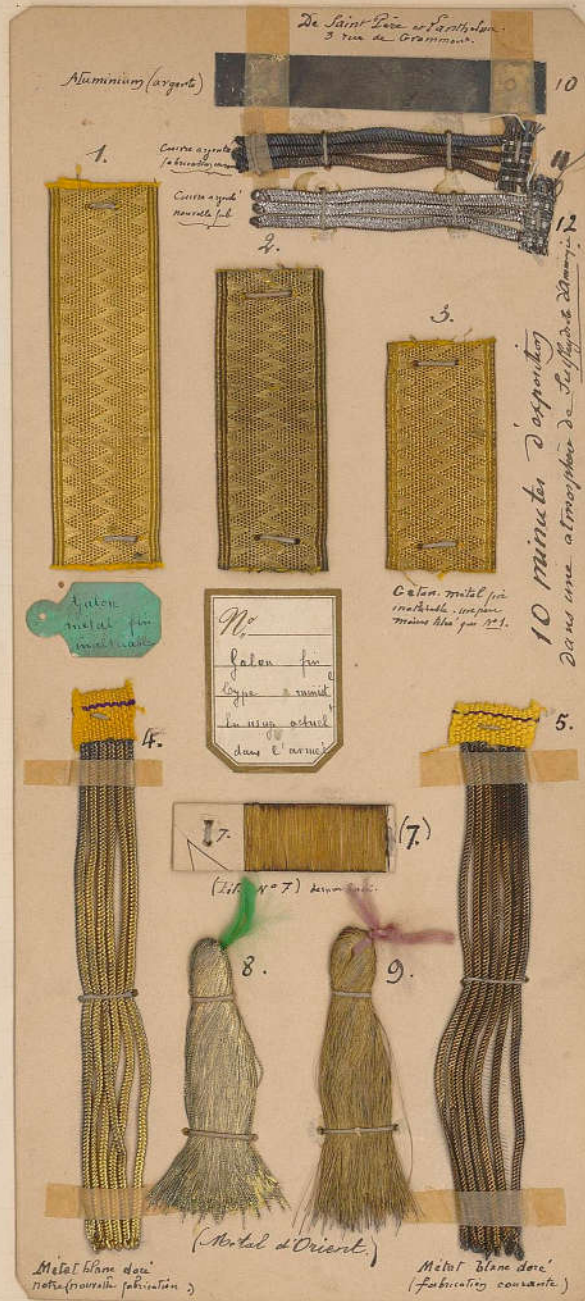 De Saint Père et
3 rue de Grammont.
Aluminium (argenté)
10
Cuivre argenté
fabrication
11
Cuivre argenté
nouvelle fab
12
1.
2.
3.
10 minutes d'exposition
dans une atmosphère de Sulfhydrate d'Ammoniaque
Galon
métal fin
inaltérable
No
Galon fin
type
en usage actuel
dans l'armée
Galon métal fin
inaltérable
moins titré que No 1.
4.
5.
7.
(7.)
(No 7)
8.
9.
(Métal d'Orient.)
Métal blanc doré
notre (nouvelle fabrication)
Métal blanc doré
(fabrication courante)